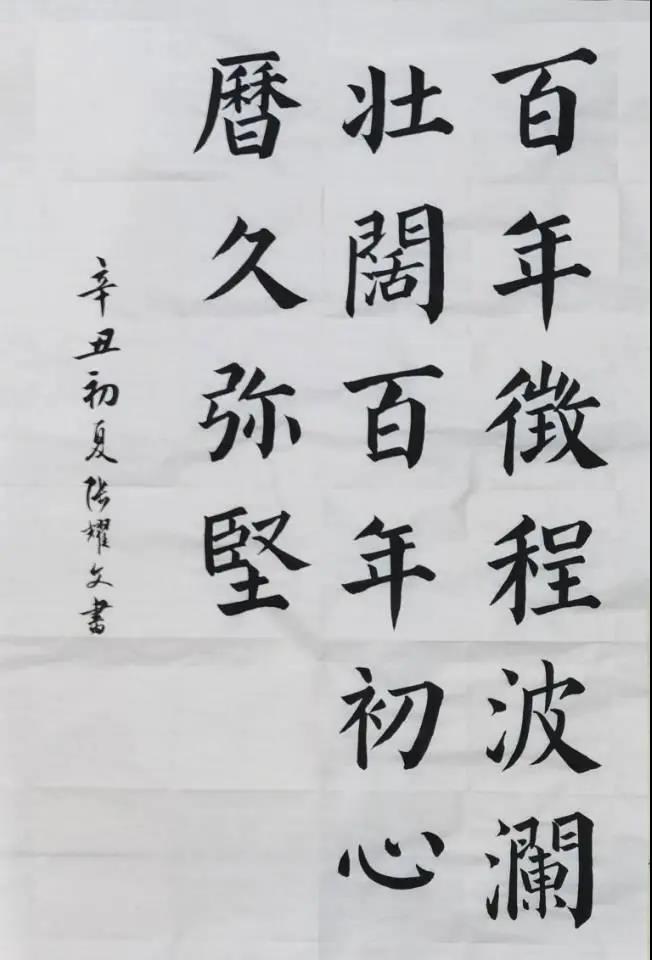 百年徵程波瀾
壯闊百年初心
曆久弥堅
辛丑初夏张耀文書